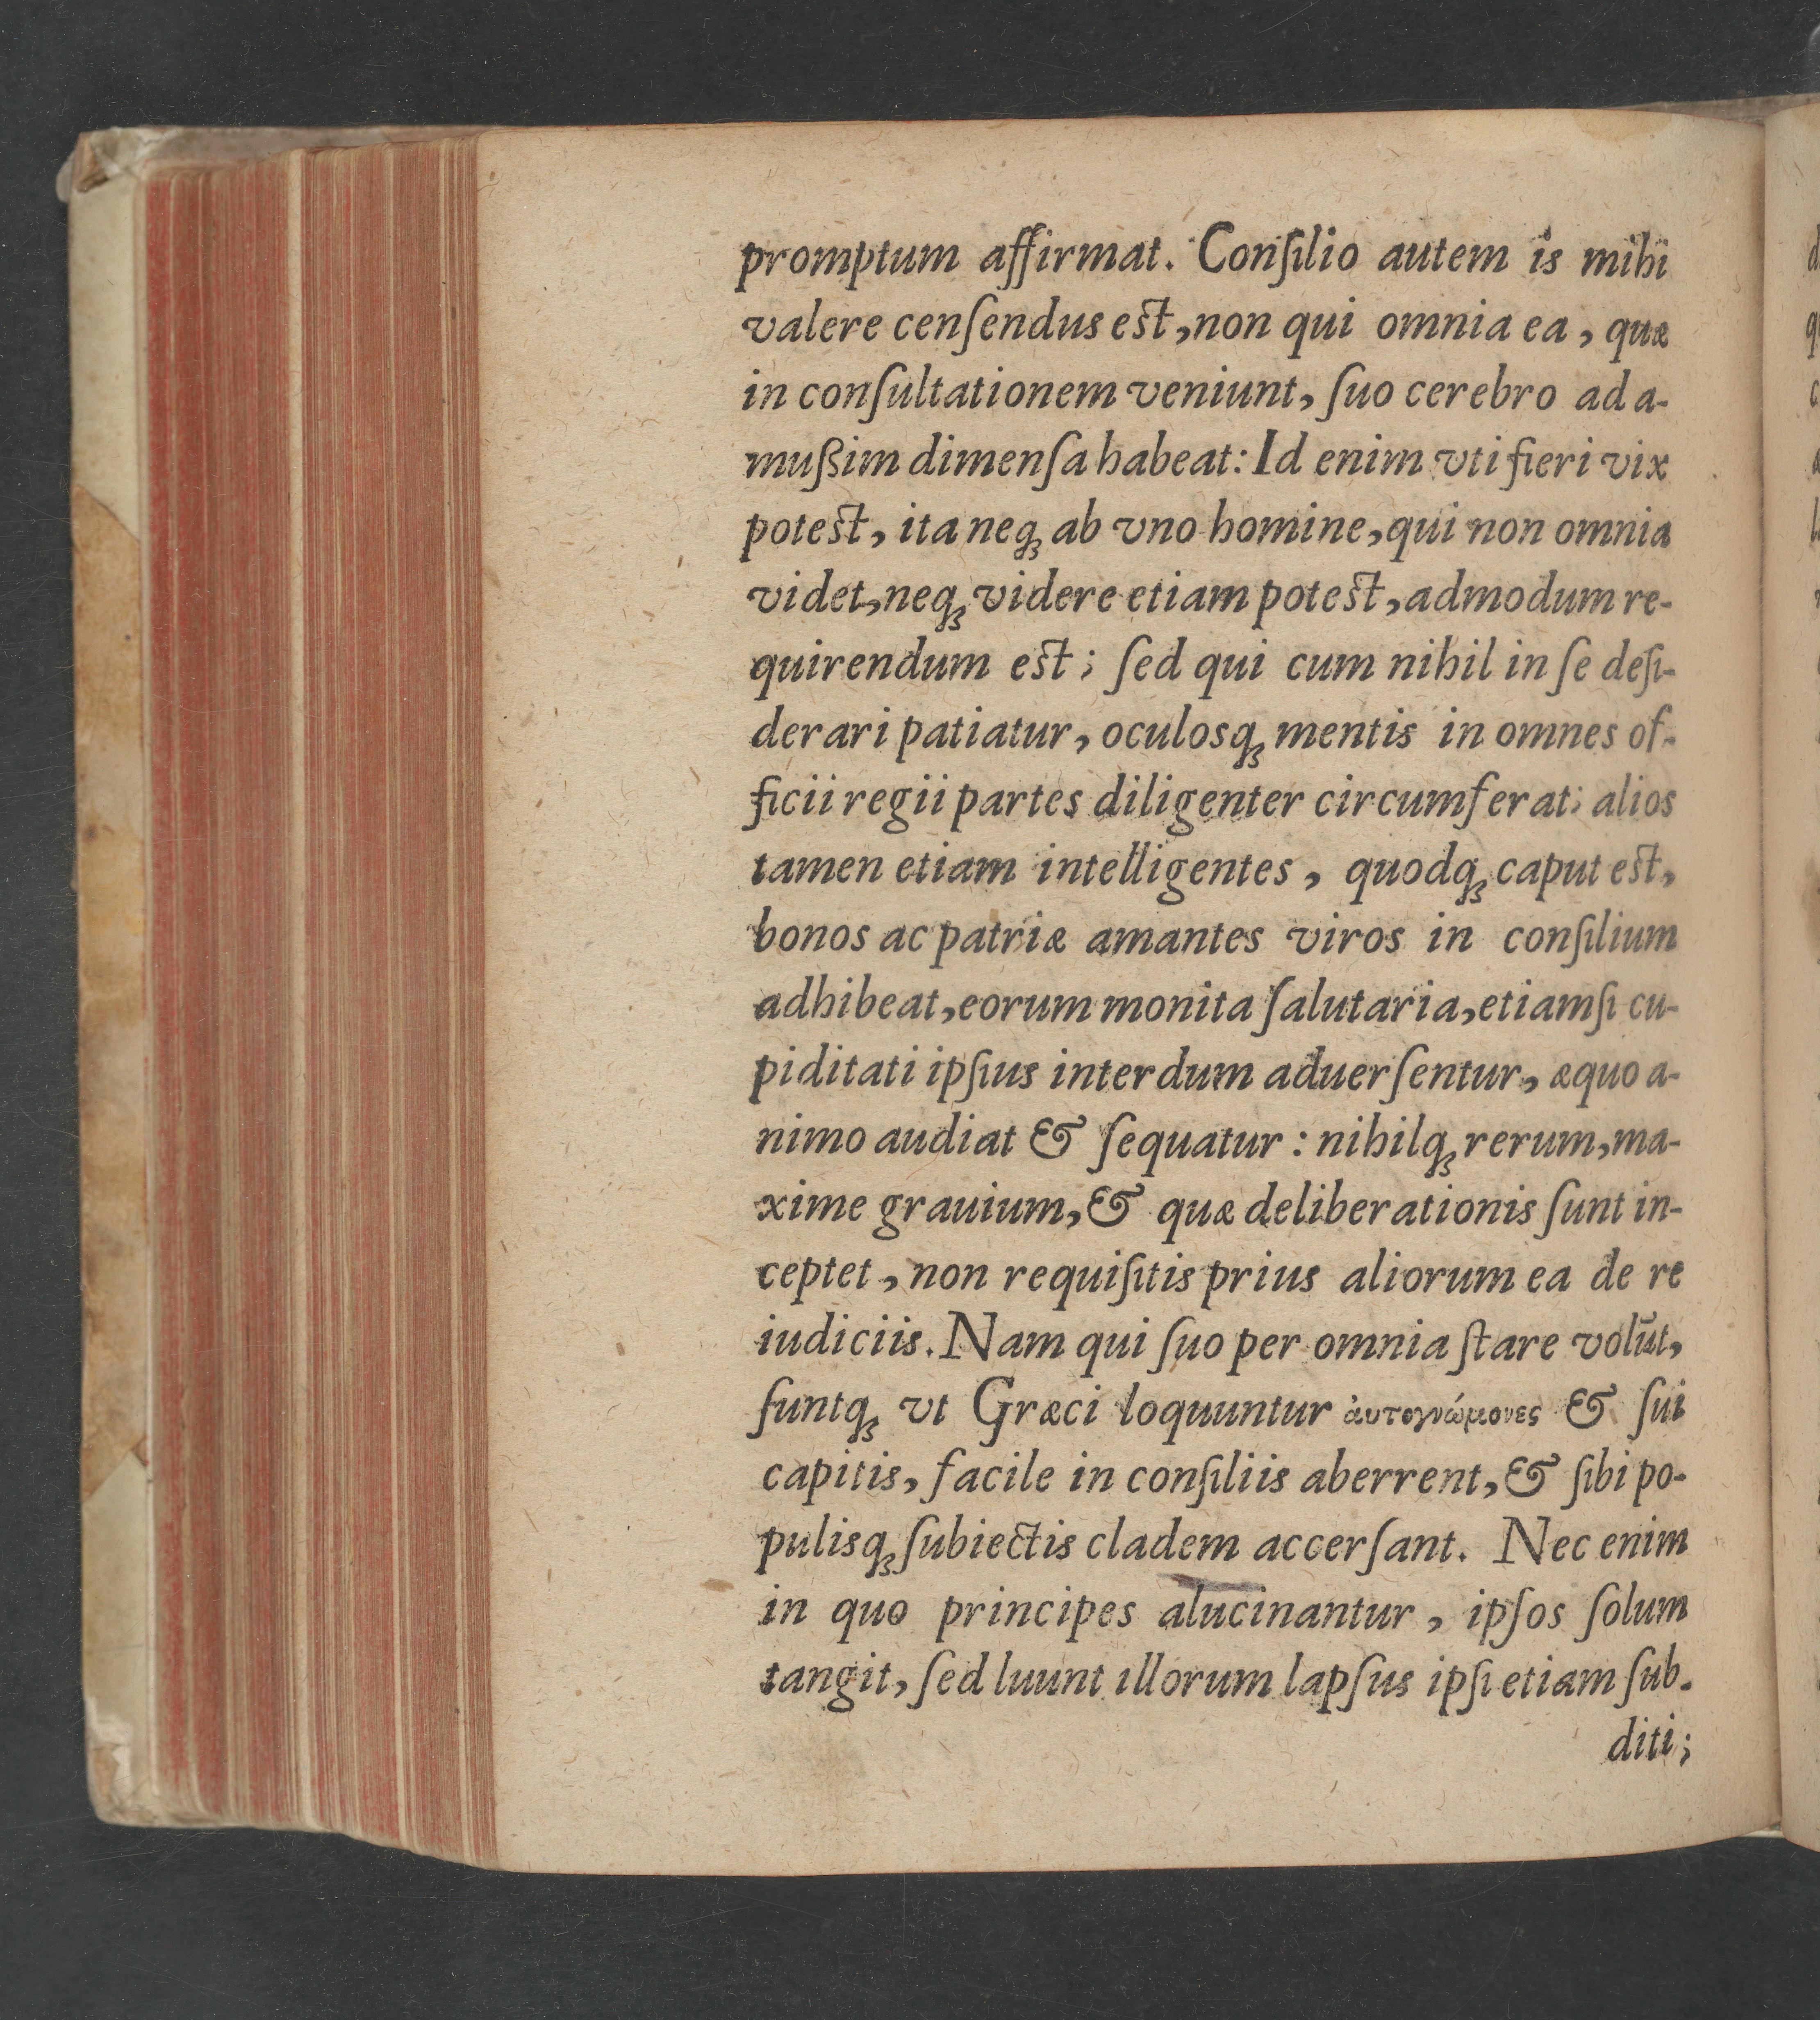 promptum affirmat. Conſilio autem is mihi
valere cenſendus est, non qui omnia ea, quæ
in conſultationem veniunt, ſuo cerebro ad a-
mußim dimenſa habeat: Id enim vti fieri vix
potest, ita neqꝫ ab vno homine, qui non omnia
videt, neqꝫ videre etiam potest, admodum re-
quirendum est; ſed qui cum nihil in ſe deſi-
derari patiatur, oculosqꝫ mentis in omnes of-
ficii regii partes diligenter circumferat; alios
tamen etiam intelligentes, quodqꝫ caput est,
bonos ac patriæ amantes viros in conſilium
adhibeat, eorum monita ſalutaria, etiamſi cu-
piditati ipſius interdum aduerſentur, æquo a-
nimo audiat & ſequatur: nihilqꝫ rerum, ma-
xime grauium, & quæ deliberationis ſunt in-
ceptet, non requiſitis prius aliorum ea de re
iudiciis. Nam qui ſuo per omnia ſtare volūt,
ſuntqꝫ vt Græci loquuntur ἀυτογνώμονες & ſui
capitis, facile in conſiliis aberrent, & ſibi po-
pulisqꝫ ſubiectis cladem accerſant. Nec enim
in quo principes alucinantur, ipſos ſolum
tangit, ſed luunt illorum lapſus ipſi etiam ſub-
diti;